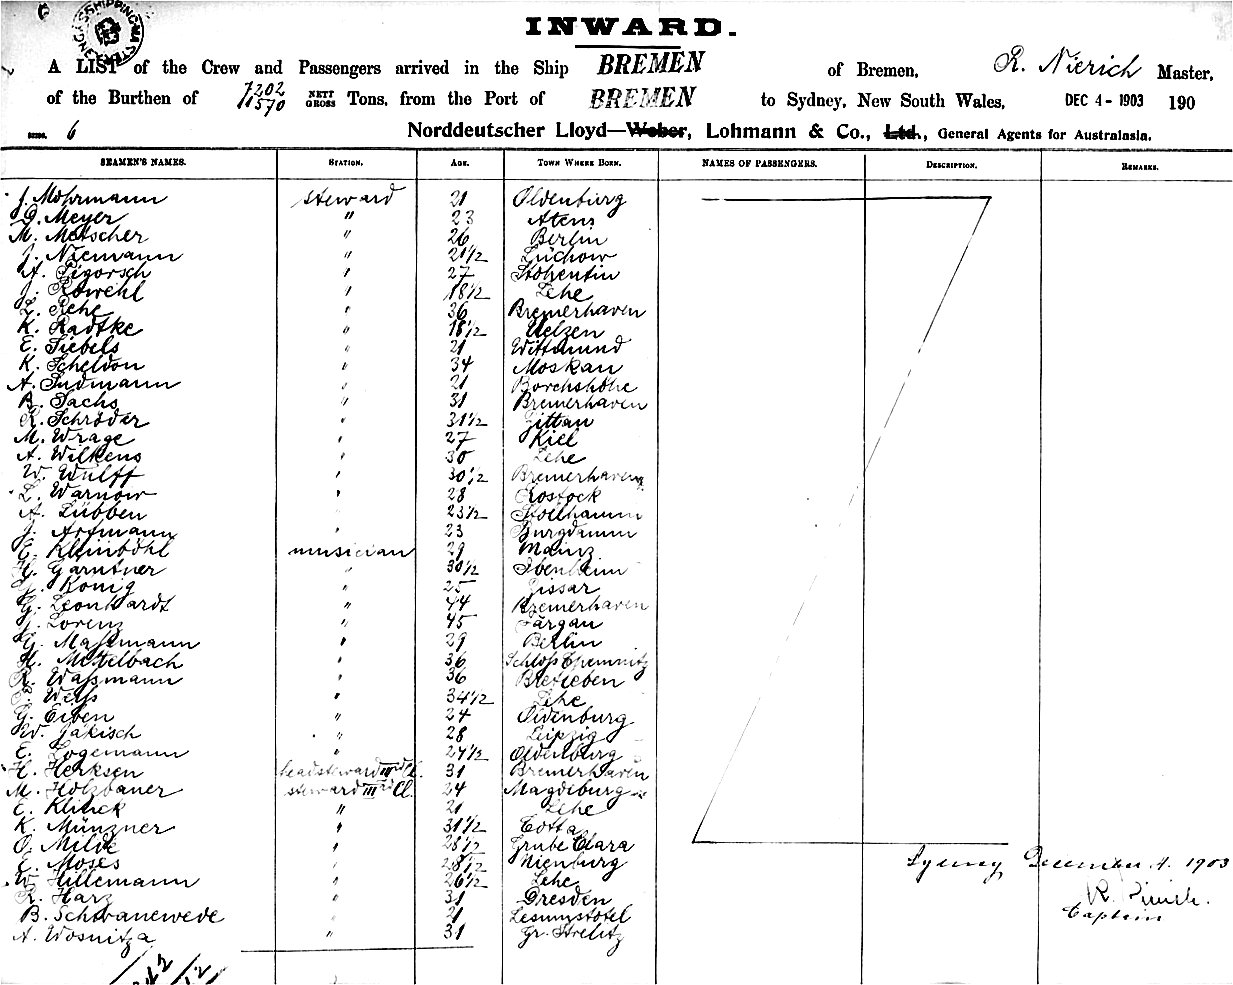 INWARD.
A LIST of the Crew and Passengers arrived in the Ship BREMEN of Bremen, R. Nierich Master,
of the Burthen of 7202 11570 NETT GROSS Tons, from the Port of BREMEN to Sydney, New South Wales, DEC 4 - 1903 190
6 Norddeutscher Lloyd—Weber, Lohmann & Co., Ltd., General Agents for Australasia.
SEAMEN'S NAMES. STATION. AGE. TOWN WHERE BORN. NAMES OF PASSENGERS. DESCRIPTION. REMARKS.
J. Mohrmann steward 21 Oldenburg
G. Meyer " 23 Atens
M. Motscher " 26 Berlin
J. Niemann " 21 1/2 Lüchow
A. Sigorsch " 27 Stohentin
J. Rowehl " 18 1/2 Lehe
L. Rehe " 36 Bremerhaven
K. Radtke " 18 1/2 Uelzen
E. Siebels " 21 Wittmund
K. Scheldon " 34 Moskau
A. Südmann " 21 Borchshöhe
B. Sachs " 31 Bremerhaven
R. Schröder " 31 1/2 Zittau
M. Wrage " 27 Kiel
A. Wilkens " 30 Lehe
W. Wulff " 30 1/2 Bremerhaven
L. Warnow " 28 Rostock
A. Lübben " 23 1/2 Stollhamm
J. Arfmann " 23 Burgdamm
E. Kleinbohl musician 29 Mainz
G. Garntner " 30 1/2 Ibenheim
König " 25 Zissar
G. Leonhardt " 44 Bremerhaven
J. Lorenz " 45 Targau
G. Maßmann " 29 Berlin
H. Mittelbach " 36 Schloß Chemnitz
R. Waßmann " 36 Bleieben
Weiß " 34 1/2 Lehe
G. Eiben " 24 Oldenburg
W. Jakisch " 28 Leipzig
E. Logemann " 27 1/2 Oldenburg
H. Herksen headsteward III rd Cl. 31 Bremerhaven
M. Holzbauer steward III rd Cl. 24 Magdeburg
E. Klinck " 21 Lehe
K. Münzner " 31 1/2 Cotta
O. Milde " 28 1/2 Grube Clara
E. Moses " 28 1/2 Nienburg
W. Hillemann " 26 1/2 Lehe
R. Harz " 31 Dresden
B. Schwanewede " 21 Lesumstotel
A. Wosnitza " 31 Gr. Strelitz
Sydney December 4. 1903
Captain